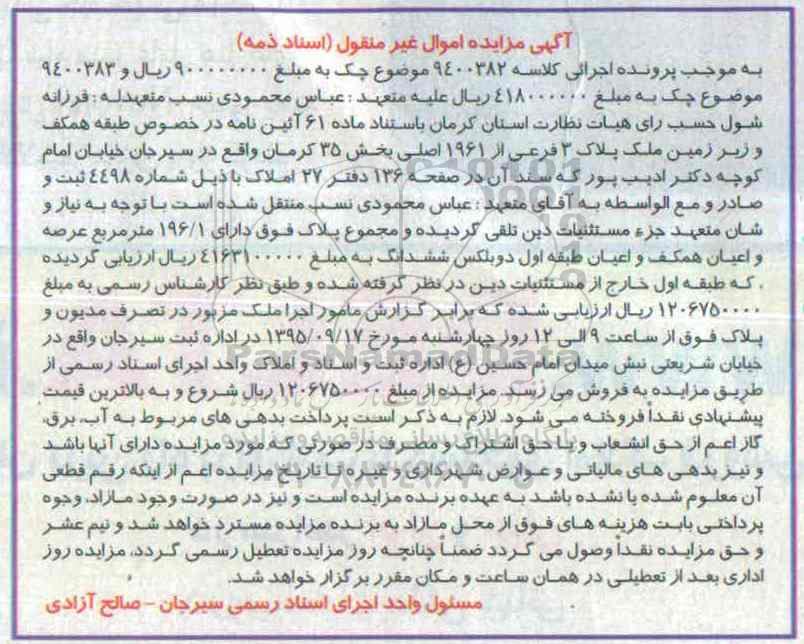 آگهی مزایده اموال غیر منقول (اسناد ذمه)
به موجب پرونده اجرائی کلاسه ۹٤۰۰۳۸۲ موضوع چک به مبلغ ۹۰۰۰۰۰۰۰۰ ریال و ۹٤۰۰۳۸۳
موضوع چک به مبلغ ٤۱۸۰۰۰۰۰۰ ریال علیه متعهد : عباس محمودی نسب متعهدله : فرزانه
شول حسب رای هیات نظارت استان کرمان باستناد ماده ۶۱ آئین نامه در خصوص طبقه همکف
و زیر زمین ملک پلاک ۳ فرعی از ۱۹۶۱ اصلی بخش ۳۵ کرمان واقع در سیرجان خیابان امام
کوچه دکتر ادیب پور که سند آن در صفحه ۱۳۶ دفتر ۲۷ املاک با ذیل شماره ٤٤۹۸ ثبت و
صادر و مع الواسطه به آقای متعهد : عباس محمودی نسب منتقل شده است با توجه به نیاز و
شان متعهد جزء مستثنیات دین تلقی گردیده و مجموع پلاک فوق دارای ۱۹۶/۱ مترمربع عرصه
و اعیان همکف و اعیان طبقه اول دوبلکس ششدانگ به مبلغ ٤۱۶۳۱۰۰۰۰۰ ریال ارزیابی گردیده
، که طبقه اول خارج از مستثنیات دین در نظر گرفته شده و طبق نظر کارشناس رسمی به مبلغ
۱۲۰۶۷۵۰۰۰۰ ریال ارزیابی شده که برابر گزارش مامور اجرا ملک مزبور در تصرف مدیون و
پلاک فوق از ساعت ۹ الی ۱۲ روز چهارشنبه مورخ ۱۳۹۵/۰۹/۱۷ در اداره ثبت سیرجان واقع در
خیابان شریعتی نبش میدان امام حسین (ع) اداره ثبت و اسناد و املاک واحد اجرای اسناد رسمی از
طریق مزایده به فروش می رسد. مزایده از مبلغ ۱۲۰۶۷۵۰۰۰۰ ریال شروع و به بالاترین قیمت
پیشنهادی نقداً فروخته می شود. لازم به ذکر است پرداخت بدهی های مربوط به آب، برق،
گاز اعم از حق انشعاب و یا حق اشتراک و مصرف در صورتی که مورد مزایده دارای آنها باشد
و نیز بدهی های مالیاتی و عوارض شهرداری و غیره تا تاریخ مزایده اعم از اینکه رقم قطعی
آن معلوم شده یا نشده باشد به عهده برنده مزایده است و نیز در صورت وجود مازاد، وجوه
پرداختی بابت هزینه های فوق از محل مازاد به برنده مزایده مسترد خواهد شد و نیم عشر
و حق مزایده نقداً وصول می گردد ضمناً چنانچه روز مزایده تعطیل رسمی گردد، مزایده روز
اداری بعد از تعطیلی در همان ساعت و مکان مقرر برگزار خواهد شد.
مسئول واحد اجرای اسناد رسمی سیرجان – صالح آزادی
ParsNamadData